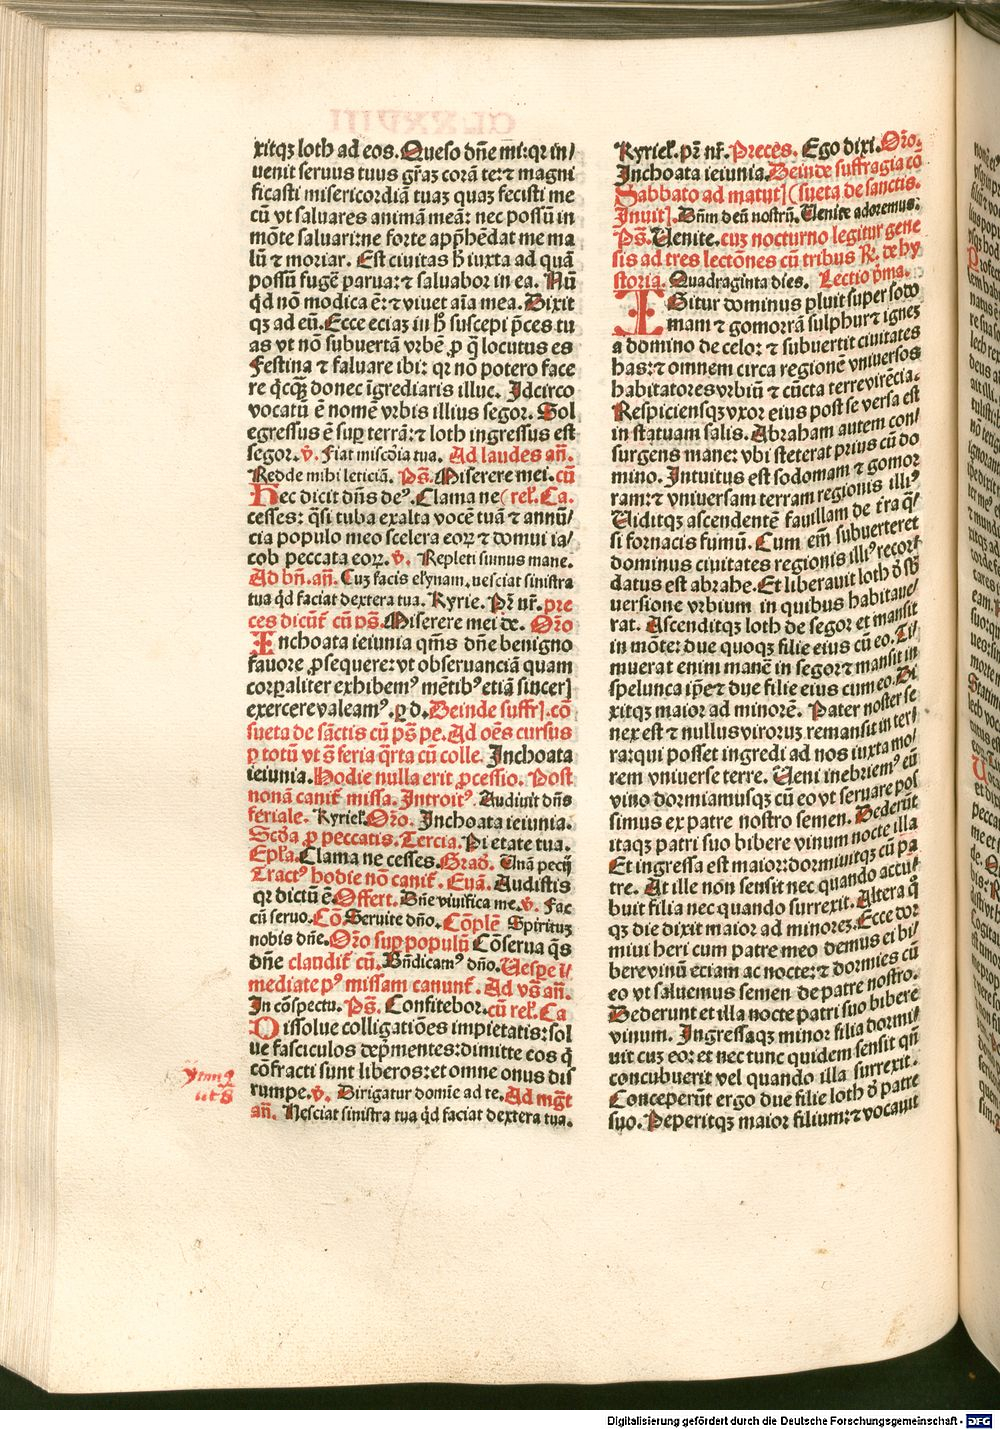 xitqꝫ loth ad eos. Queso dñe mi: qꝛ in/
uenit seruus tuus gr̃aꝫ corã te: ⁊ magni
ficasti misericordiã tuaꝫ quaꝫ fecisti me
cũ vt saluares animã meã: nec possũ in
mõte saluari: ne forte app̃hẽdat me ma
lũ ⁊ moriar. Est ciuitas h̃ iuxta ad quã
possũ fugẽ parua: ⁊ saluabor in ea. Nũ
qd̃ nõ modica ẽ: ⁊ viuet aĩa mea. Dixit
qꝫ ad eũ. Ecce eciaꝫ in h̃ suscepi p̃ces tu
as vt nõ subuertã vrbẽ ꝓ q̃ locutus es
Festina ⁊ saluare ibi: qꝛ nõ potero face
re q̃cqꝫ donec ĩgrediaris illuc. Idcirco
vocatũ ẽ nomẽ vrbis illius segor. Sol
egressus ẽ suꝑ terrã: ⁊ loth ingressus est
segor. ꝟ. Fiat misc̃dia tua. Ad laudes añ.
Redde mihi leticiã. Ps̃. Miserere mei. cũ
Hec dicit dñs deꝰ. Clama ne ( rel̃. Ca.
cesses: q̃si tuba exalta vocẽ tuã ⁊ annũ/
cia populo meo scelera eoꝝ ⁊ domui ia/
cob peccata eoꝝ. ꝟ. Repleti sumus mane.
Ad bñ. añ. Cuꝫ facis el̃ynam. nesciat sinistra
tua qd̃ faciat dextera tua. Kyrie. Pr̃ nr̃. pre
ces dicũt᷑ cũ ps̃. Miserere mei de. Or̃o
Inchoata ieiunia qm̃s dñe benigno
fauore ꝓsequere: vt obseruanciã quam
corꝑaliter exhibemꝰ mẽtibꝰ etiã sinceꝝ
exercere valeamꝰ. ꝑ d. Deinde suffꝝ. cõ
sueta de sãctis cũ ps̃ pe. Ad oẽs cursus
ꝑ totũ vt s̃ feria q̃rta cũ colle. Inchoata
ieiunia. Hodie nulla erit ꝓcessio. Post
nonã canit᷑ missa. Introitꝰ. Audiuit dñs
feriale. Kyriel̃. Or̃o. Inchoata ieiunia.
Scd̃a ꝓ peccatis. Tercia. Pietate tua.
Epl̃a. Clama ne cesses. Grad̃. Unã pecij
Tractꝰ hodie nõ canit᷑. Euã. Audistis
qꝛ dictũ ẽ Offert. Dñe viuifica me. ꝟ. Fac
cũ seruo. Cõ. Seruite dño. Cõplẽ Spirituꝫ
nobis dñe. Or̃o suꝑ populũ Cõserua q̃s
dñe claudit᷑ cũ. Bñdicamꝰ dño. Uespe ĩ/
mediate pꝰ missam canunt᷑. Ad vs̃ añ.
In cõspectu. Ps̃. Confitebor. cũ rel̃. Ca
Dissolue colligatiões impietatis: sol
ue fasciculos dep̃mentes: dimitte eos q̃
cõfracti sunt liberos: et omne onus dis
rumpe. ꝟ. Dirigatur domĩe ad te. Ad mg̃t
añ. Nesciat sinistra tua qd̃ faciat dextera tua.
Kyriel̃. pr̃ nr̃. Preces. Ego dixi. Or̃o.
Inchoata ieiunia. Deinde suffragia cõ
Sabbato ad matutꝝ ( sueta de sanctis.
Inuitꝝ. Dñm deũ nostrũ. Uenite adoremus.
Ps̃. Uenite. cuꝫ nocturno legitur gene
sis ad tres lectõnes cũ tribus R̃. de hy
storia. Quadraginta dies. Lectio p̃ma.
IGitur dominus pluit super sodo
mam ⁊ gomorrã sulphur ⁊ igneꝫ
a domino de celo: ⁊ subuertit ciuitates
has: ⁊ omnem circa regionẽ vniuersos
habitatores vrbiũ ⁊ cũcta terre virẽcia.
Respiciensqꝫ vxor eius post se versa est
in statuam salis. Abraham autem con/
surgens mane: vbi steterat prius cũ do
mino. Intuitus est sodomam ⁊ gomor
ram: ⁊ vniuersam terram regionis illiꝰ
Uiditqꝫ ascendentẽ fauillam de t̃ra q̃/
si fornacis fumũ. Cum em̃ subuerteret
dominus ciuitates regionis illiꝰ recor/
datus est abrahe. Et liberauit loth d̃ sb̃
uersione vrbium in quibus habitaue/
rat. Ascenditqꝫ loth de segor et mansit
in mõte: due quoqꝫ filie eius cũ eo. Ti/
muerat enim manẽ in segor ⁊ mansit in
spelunca ip̃e ⁊ due filie eius cum eo. Di
xitqꝫ maior ad minorẽ. Pater noster se
nex est ⁊ nullus viroruꝫ remansit in ter/
ra: qui posset ingredi ad nos iuxta mo/
rem vniuerse terre. Ueni inebriemꝰ eũ
vino dormiamusqꝫ cũ eo vt seruare pos
simus ex patre nostro semen. Dederũt
itaqꝫ patri suo bibere vinum nocte illa
Et ingressa est maior: dormiuitqꝫ cũ pa
tre. At ille non sensit nec quando accu/
buit filia nec quando surrexit. Altera q̃
qꝫ die dixit maior ad minoreꝫ. Ecce dor
miui heri cum patre meo demus ei bi/
bere vinũ eciam ac nocte: ⁊ dormies cũ
eo vt saluemus semen de patre nostro.
Dederunt et illa nocte patri suo bibere
vinum. Ingressaqꝫ minor filia dormi/
uit cuꝫ eo: et nec tunc quidem sensit qñ
concubuerit vel quando illa surrexit.
Conceperũt ergo due filie loth d̃ patre
suo. Peperitqꝫ maior filium: ⁊ vocauit
Digitalisierung gefördert durch die Deutsche Forschungsgemeinschaft - DFG